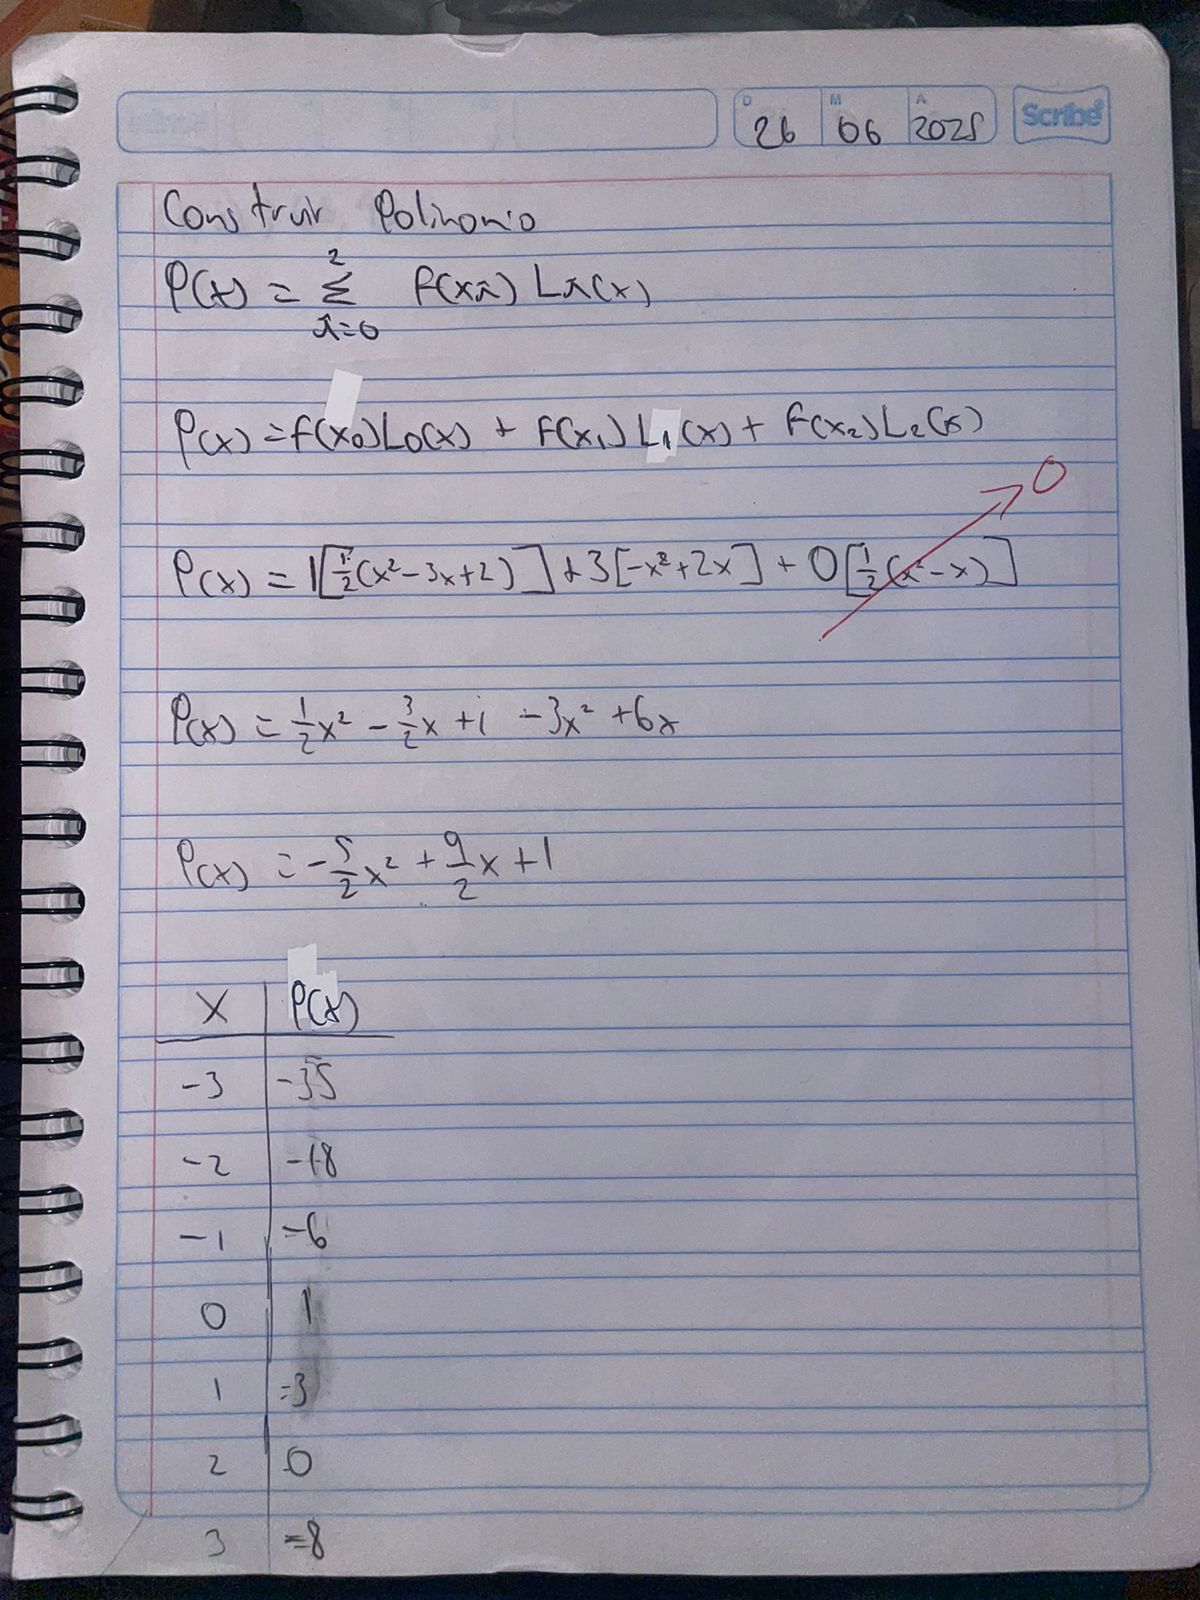 D 26 M 06 A 2025 Scribe
Construir Polinomio
P(x) = 2 Σ i=0 f(xi) Li(x)
P(x) = f(x₀)L₀(x) + f(x₁) L₁(x) + f(x₂)L₂(x)
0
P(x) = 1[1/2(x²-3x+2)] + 3[-x²+2x] + 0[1/2(x²-x)]
P(x) = 1/2x² - 3/2x + 1 - 3x² + 6x
P(x) = -5/2x² + 9/2x + 1
x P(x)
-3 -35
-2 -18
-1 -6
0 1
1 =3
2 0
3 =8